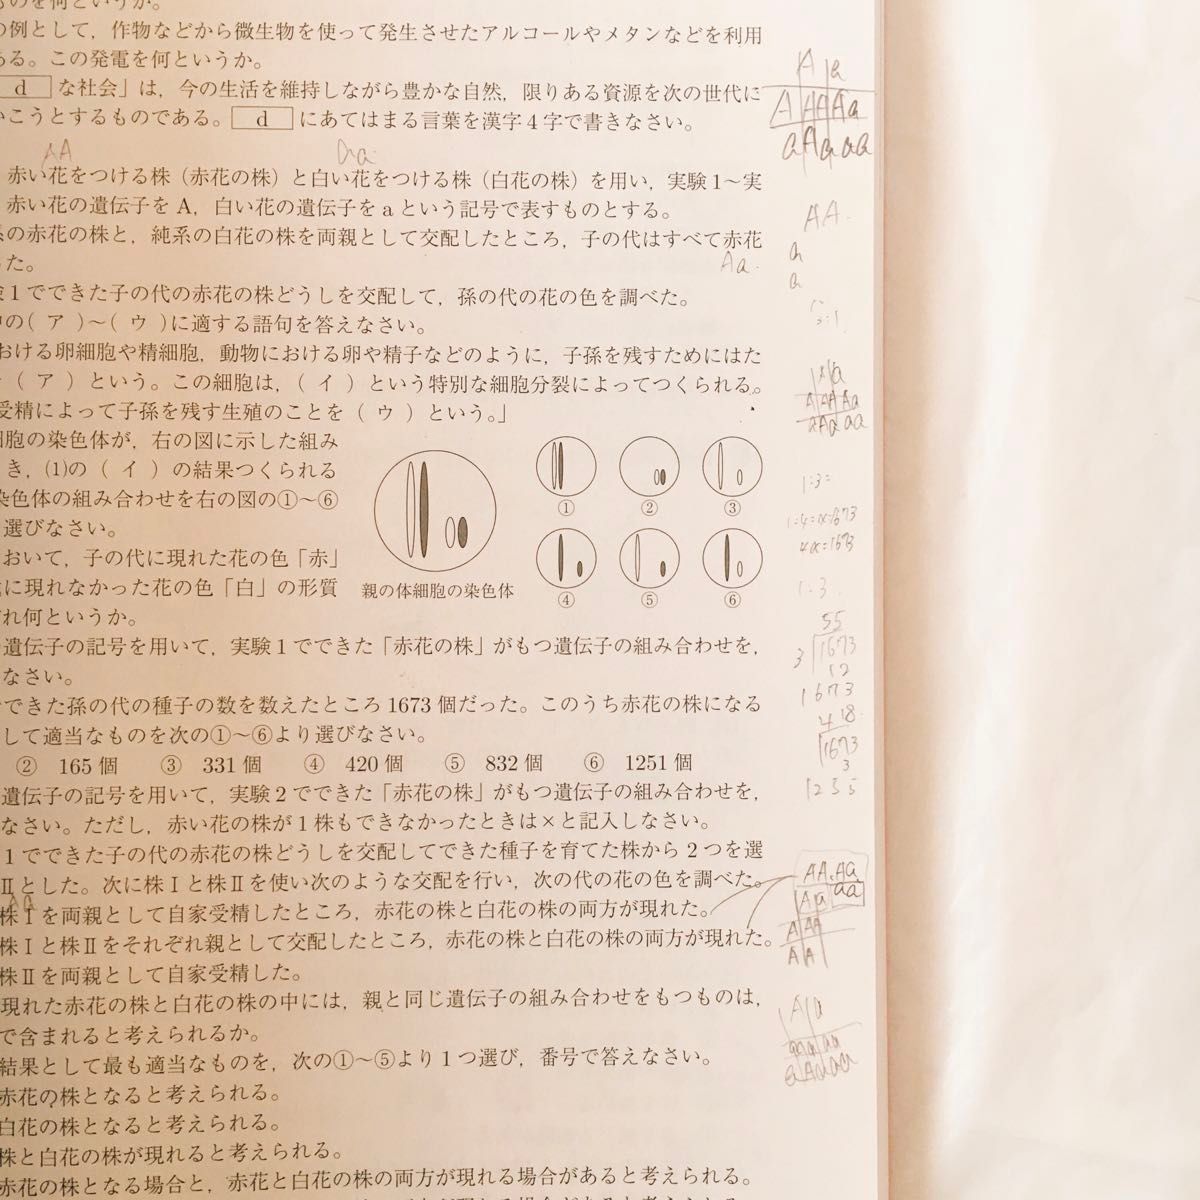 ものを何というか。
の例として，作物などから微生物を使って発生させたアルコールやメタンなどを利用
ある。この発電を何というか。
d な社会」は，今の生活を維持しながら豊かな自然，限りある資源を次の世代に
いこうとするものである。 d にあてはまる言葉を漢字4字で書きなさい。
AA aa
赤い花をつける株（赤花の株）と白い花をつける株（白花の株）を用い，実験1～実
赤い花の遺伝子をA，白い花の遺伝子をaという記号で表すものとする。
系の赤花の株と，純系の白花の株を両親として交配したところ，子の代はすべて赤花
った。
Aa
験1でできた子の代の赤花の株どうしを交配して，孫の代の花の色を調べた。
中の( ア )～( ウ )に適する語句を答えなさい。
おける卵細胞や精細胞，動物における卵や精子などのように，子孫を残すためにはた
( ア ) という。この細胞は，( イ ) という特別な細胞分裂によってつくられる。
受精によって子孫を残す生殖のことを ( ウ ) という。」
細胞の染色体が，右の図に示した組み
き，⑴の ( イ ) の結果つくられる
染色体の組み合わせを右の図の①～⑥
選びなさい。
おいて，子の代に現れた花の色「赤」
に現れなかった花の色「白」の形質
ぞれ何というか。
親の体細胞の染色体
① ② ③
④ ⑤ ⑥
遺伝子の記号を用いて，実験1でできた「赤花の株」がもつ遺伝子の組み合わせを，
なさい。
できた孫の代の種子の数を数えたところ1673個だった。このうち赤花の株になる
して適当なものを次の①～⑥より選びなさい。
② 165個 ③ 331個 ④ 420個 ⑤ 832個 ⑥ 1251個
遺伝子の記号を用いて，実験2でできた「赤花の株」がもつ遺伝子の組み合わせを，
なさい。ただし，赤い花の株が1株もできなかったときは×と記入しなさい。
1でできた子の代の赤花の株どうしを交配してできた種子を育てた株から2つを選
Ⅱとした。次に株Ⅰと株Ⅱを使い次のような交配を行い，次の代の花の色を調べた。
株Ⅰを両親として自家受精したところ，赤花の株と白花の株の両方が現れた。
株Ⅰと株Ⅱをそれぞれ親として交配したところ，赤花の株と白花の株の両方が現れた。
株Ⅱを両親として自家受精した。
現れた赤花の株と白花の株の中には，親と同じ遺伝子の組み合わせをもつものは，
で含まれると考えられるか。
結果として最も適当なものを，次の①～⑤より1つ選び，番号で答えなさい。
赤花の株となると考えられる。
白花の株となると考えられる。
株と白花の株が現れると考えられる。
赤花の株となる場合と，赤花と白花の株の両方が現れる場合があると考えられる。
A a
A AA Aa
a Aa aa
AA
a
a
A a
A AA Aa
a Aa aa
1:3=
1:4=x=1673
4x=1673
1:3
55
3 1673
12
1673
418
1673
3
1255
AA.Aa
aa
A a
A AA
A A
A a
a Aa aa
a Aa aa